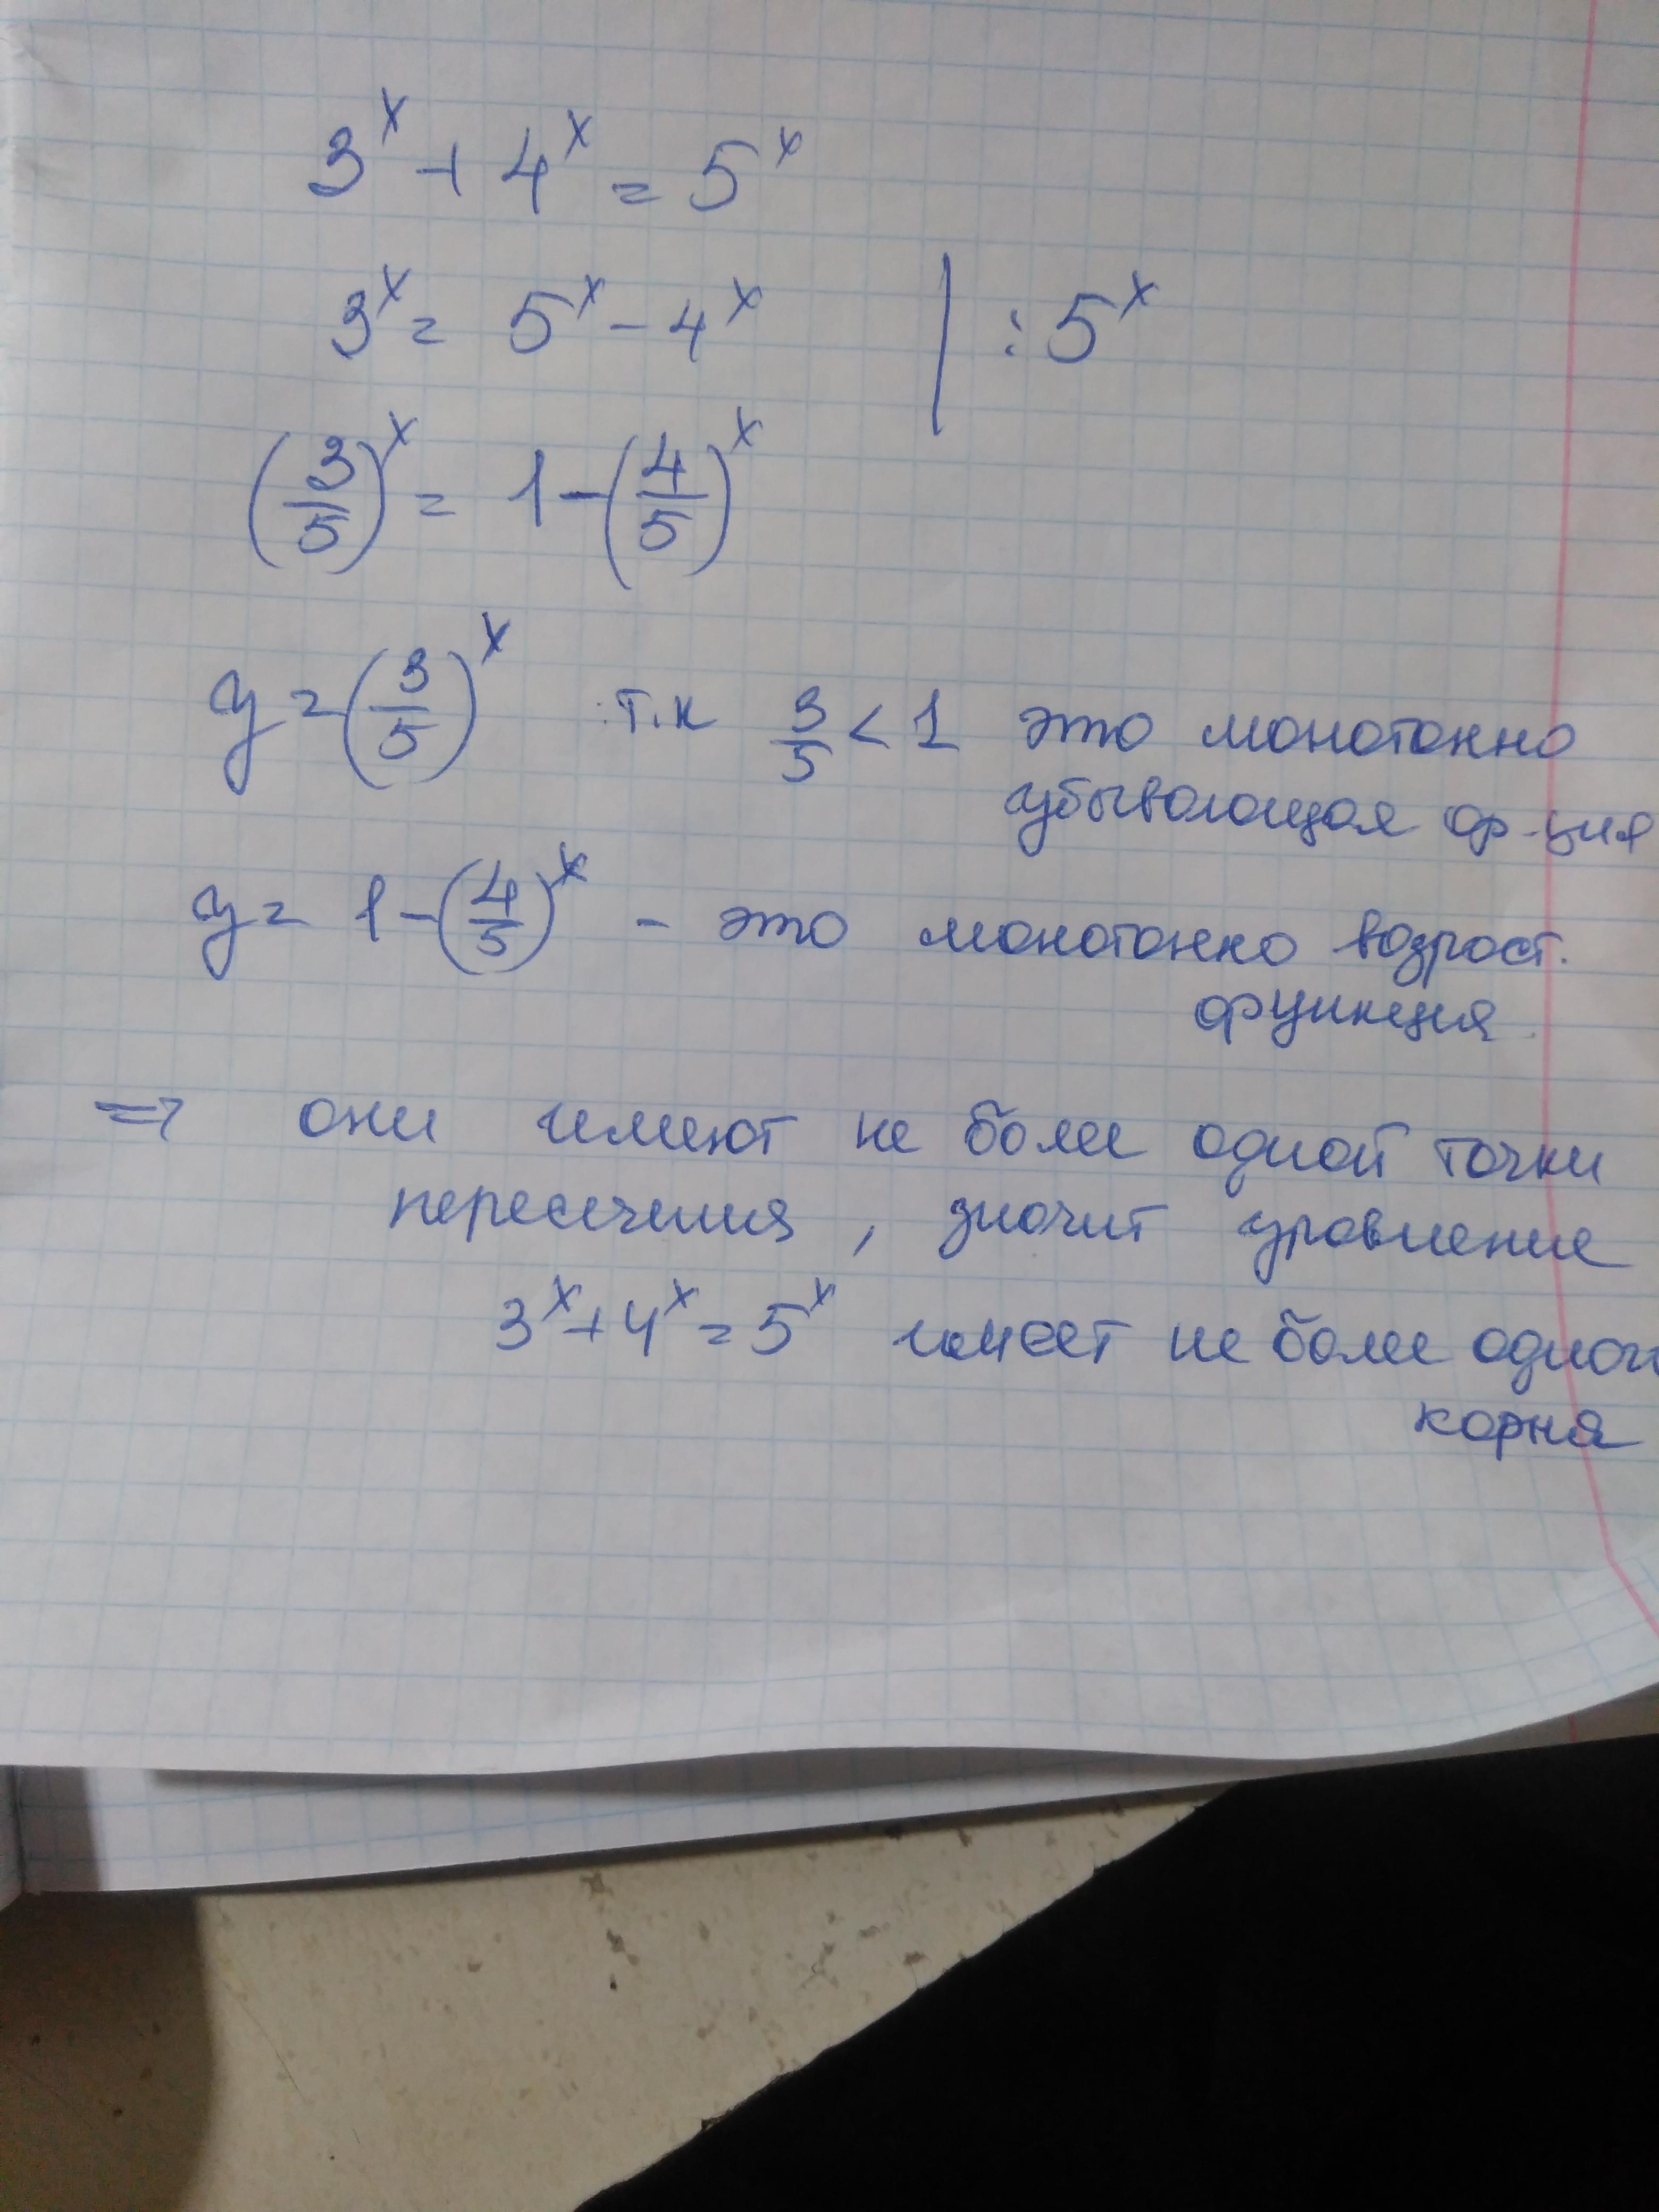 3^x + 4^x = 5^x
3^x = 5^x - 4^x | : 5^x
(3/5)^x = 1 - (4/5)^x
y = (3/5)^x т.к 3/5 < 1 это монотонно
убывающая ф-ция
y = 1 - (4/5)^x - это монотонно возраст.
функция
=> они имеют не более одной точки
пересечения, значит уравнение
3^x + 4^x = 5^x имеет не более одного
корня